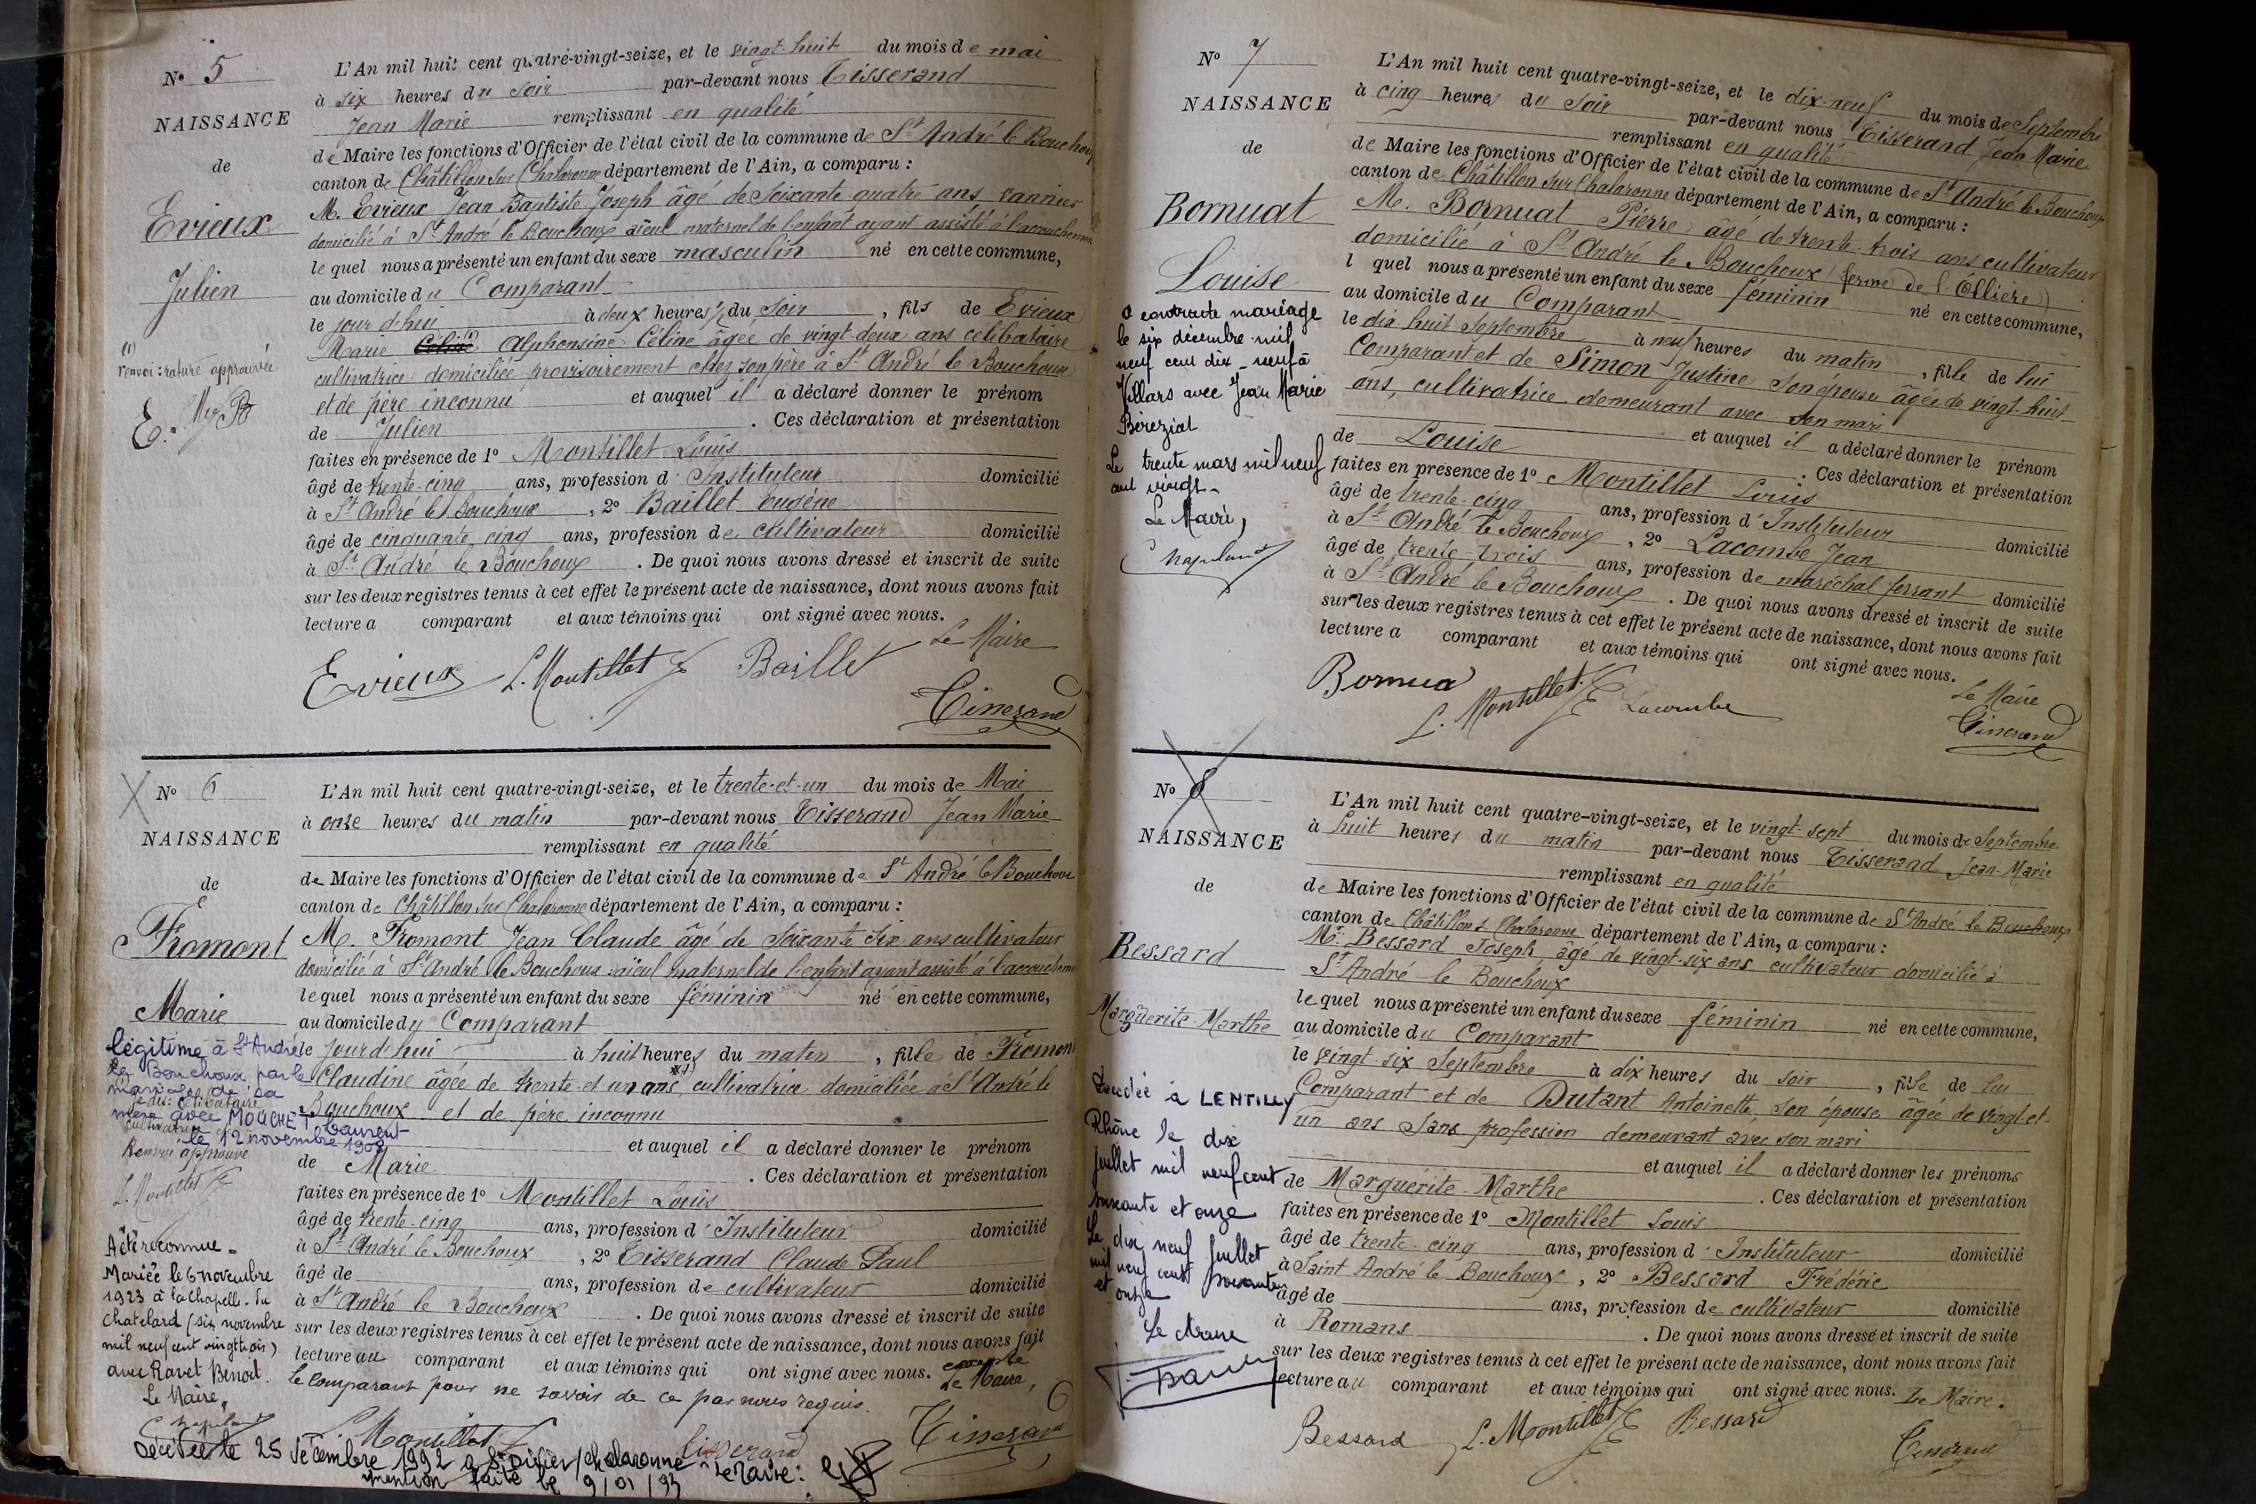 N° 5
NAISSANCE
de
Evieux
Julien
(1)
renvoi : rature approuvée
L'An mil huit cent quatre-vingt-seize, et le vingt-huit du mois de mai
à six heures du soir par-devant nous Tisserand
Jean Marie remplissant en qualité
de Maire les fonctions d'Officier de l'état civil de la commune de St André le Bouchoux
canton de Châtillon sur Chalaronne département de l'Ain, a comparu :
M. Evieux Jean Baptiste Joseph âgé de soixante quatre ans, vannier
domicilié à St André le Bouchoux aïeul maternel de l'enfant ayant assisté à l'accouchement
lequel nous a présenté un enfant du sexe masculin né en cette commune,
au domicile du Comparant
le jour d'hui à deux heures ½ du soir, fils de Evieux
Marie Céline (1) Alphonsine Céline âgée de vingt-deux ans célibataire
cultivatrice domiciliée provisoirement chez son père à St André le Bouchoux
et de père inconnu et auquel il a déclaré donner le prénom
de Julien. Ces déclaration et présentation
faites en présence de 1° Montillet Louis
âgé de trente-cinq ans, profession d'Instituteur domicilié
à St André le Bouchoux, 2° Baillet Eugène
âgé de cinquante cinq ans, profession de cultivateur domicilié
à St André le Bouchoux. De quoi nous avons dressé et inscrit de suite
sur les deux registres tenus à cet effet le présent acte de naissance, dont nous avons fait
lecture a comparant et aux témoins qui ont signé avec nous.
Le Maire
Evieux L. Montillet Baillet
Tisserand
N° 6
NAISSANCE
de
Fromont
Marie
légitimé à St André
le Bouchoux par le
mariage de sa
mère avec MOUCHET Laurent
le 12 novembre 1908
célibataire
cultivatrice
Renvoi approuvé
L. Montillet
A été reconnue.
Mariée le 6 novembre
1923 à La Chapelle-du
Chatelard (six novembre
mil neuf cent vingt trois)
avec Ravet Benoit.
Le Maire,
L'An mil huit cent quatre-vingt-seize, et le trente-et-un du mois de Mai
à onze heures du matin par-devant nous Tisserand Jean Marie
remplissant en qualité
de Maire les fonctions d'Officier de l'état civil de la commune de St André le Bouchoux
canton de Châtillon sur Chalaronne département de l'Ain, a comparu :
M. Fromont Jean Claude âgé de soixante six ans cultivateur
domicilié à St André le Bouchoux aïeul maternel de l'enfant ayant assisté à l'accouchement
lequel nous a présenté un enfant du sexe féminin né en cette commune,
au domicile du Comparant
le jour d'hui à huit heures du matin, fille de Fromont
Claudine âgée de trente-et-un ans, cultivatrice domiciliée à St André le
Bouchoux et de père inconnu
et auquel il a déclaré donner le prénom
de Marie. Ces déclaration et présentation
faites en présence de 1° Montillet Louis
âgé de trente-cinq ans, profession d'Instituteur domicilié
à St André le Bouchoux, 2° Tisserand Claude Paul
âgé de ans, profession de cultivateur domicilié
à St André le Bouchoux. De quoi nous avons dressé et inscrit de suite
sur les deux registres tenus à cet effet le présent acte de naissance, dont nous avons fait
lecture au comparant et aux témoins qui ont signé avec nous. excepté
le comparant pour ne savoir de ce par nous requis. Le Maire,
L. Montillet Tisserand Tisserand
Décédée le 25 décembre 1992 à St Didier/Chalaronne Le Maire :
mention faite le 9/01/93
N° 7
NAISSANCE
de
Bornuat
Louise
a contracté mariage
le six décembre mil
neuf cent dix-neuf à
Villars avec Jean Marie
Béréziat
Le trente mars mil neuf
cent vingt.
Le Maire,
L'An mil huit cent quatre-vingt-seize, et le dix-neuf du mois de Septembre
à cinq heures du soir par-devant nous Tisserand Jean Marie
remplissant en qualité
de Maire les fonctions d'Officier de l'état civil de la commune de St André le Bouchoux
canton de Châtillon sur Chalaronne département de l'Ain, a comparu :
M. Bornuat Pierre âgé de trente-trois ans cultivateur
domicilié à St André le Bouchoux (ferme de l'Ellière)
l quel nous a présenté un enfant du sexe féminin né en cette commune,
au domicile du Comparant
le dix huit Septembre à neuf heures du matin, fille de lui
Comparant et de Simon Justine son épouse âgée de vingt-huit
ans, cultivatrice demeurant avec son mari
et auquel il a déclaré donner le prénom
de Louise. Ces déclaration et présentation
faites en présence de 1° Montillet Louis
âgé de trente-cinq ans, profession d'Instituteur domicilié
à St André le Bouchoux, 2° Lacombe Jean
âgé de trente-trois ans, profession de maréchal ferrant domicilié
à St André le Bouchoux. De quoi nous avons dressé et inscrit de suite
sur les deux registres tenus à cet effet le présent acte de naissance, dont nous avons fait
lecture a comparant et aux témoins qui ont signé avec nous.
Le Maire
Bornua L. Montillet Lacombe
Tisserand
N° 8
NAISSANCE
de
Bessard
Marguerite-Marthe
Décédée à LENTILLY
Rhône le dix
juillet mil neuf cent
soixante et onze
Le dix neuf juillet
mil neuf cent soixante
et onze
Le Maire
L'An mil huit cent quatre-vingt-seize, et le vingt-sept du mois de Septembre
à huit heures du matin par-devant nous Tisserand Jean-Marie
remplissant en qualité
de Maire les fonctions d'Officier de l'état civil de la commune de St André le Bouchoux
canton de Châtillon s Chalaronne département de l'Ain, a comparu :
Mr Bessard Joseph, âgé de vingt-six ans cultivateur domicilié à
St André le Bouchoux
lequel nous a présenté un enfant du sexe féminin né en cette commune,
au domicile du Comparant
le vingt-six Septembre à dix heures du soir, fille de lui
Comparant et de Dutant Antoinette, son épouse âgée de vingt-et-
un ans sans profession demeurant avec son mari
et auquel il a déclaré donner les prénoms
de Marguerite-Marthe. Ces déclaration et présentation
faites en présence de 1° Montillet Louis
âgé de trente-cinq ans, profession d'Instituteur domicilié
à Saint André le Bouchoux, 2° Bessard Frédéric
âgé de ans, profession de cultivateur domicilié
à Romans. De quoi nous avons dressé et inscrit de suite
sur les deux registres tenus à cet effet le présent acte de naissance, dont nous avons fait
lecture au comparant et aux témoins qui ont signé avec nous. Le Maire.
Bessard L. Montillet Bessard
Tisserand